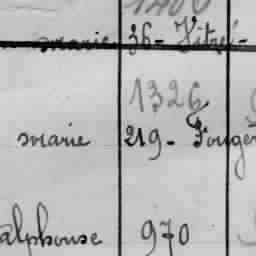 marie 36- Vitré-
1326
marie 219- Fougèr
alphonse 970